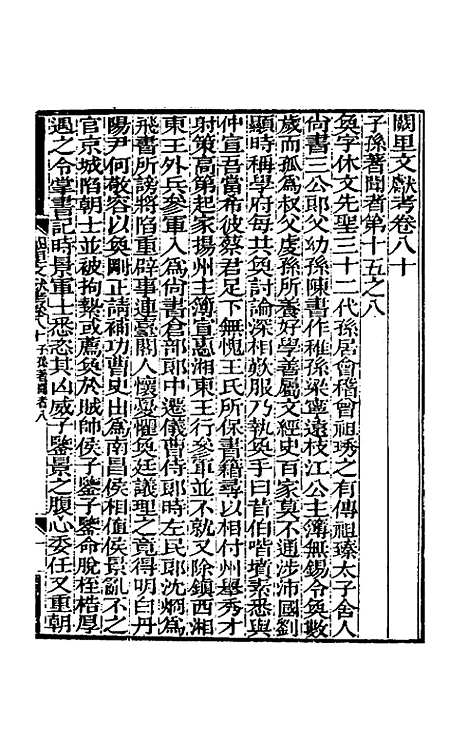 闕里文獻考卷八十
子孫著聞者第十五之八
奐字休文先聖三十二代孫居會稽曾祖琇之有傳祖臻太子舍人
尙書三公郎父幼孫陳書作稚孫梁寧遠枝江公主簿無錫令奐數
歲而孤爲叔父虔孫所養好學善屬文經史百家莫不通涉沛國劉
顯時稱學府每共奐討論深相歎服乃執奐手曰昔伯喈墳素悉與
仲宣吾當希彼蔡君足下無愧王氏所保書籍尋以相付州舉秀才
射策高第起家揚州主簿宣惠湘東王行參軍並不就又除鎮西湘
東王外兵參軍入爲尙書倉部郎中遷儀曹侍郎時左民郎沈炯爲
飛書所謗將陷重辟事連臺閣人懷憂懼奐廷議理之竟得明白丹
陽尹何敬容以奐剛正請補功曹史出爲南昌侯相值侯景亂不之
官京城陷朝士並被拘縶或薦奐於賊帥侯子鑒子鑒命脫桎梏厚
遇之令掌書記時景軍士悉恣其凶威子鑒景之腹心委任又重朝
闕里文獻考 卷八十 子孫著聞者八
一